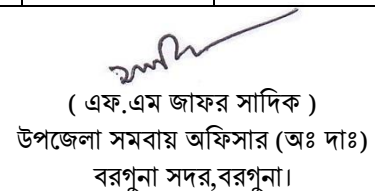 ( এফ.এম জাফর সাদিক )
উপজেলা সমবায় অফিসার (অঃ দাঃ)
বরগুনা সদর,বরগুনা।